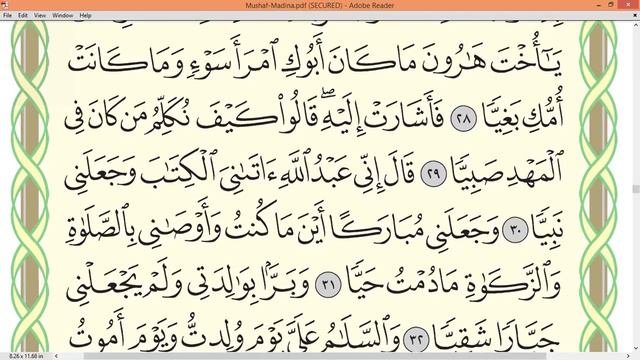 Mushaf-Madina.pdf (SECURED) - Adobe Reader
File Edit View Window Help
يَـٰٓأُخْتَ هَـٰرُونَ مَا كَانَ أَبُوكِ ٱمْرَأَ سَوْءٍ وَمَا كَانَتْ
أُمُّكِ بَغِيًّا ٢٨ فَأَشَارَتْ إِلَيْهِ ۖ قَالُوا۟ كَيْفَ نُكَلِّمُ مَن كَانَ فِى
ٱلْمَهْدِ صَبِيًّا ٢٩ قَالَ إِنِّى عَبْدُ ٱللَّهِ ءَاتَىٰنِىَ ٱلْكِتَـٰبَ وَجَعَلَنِى
نَبِيًّا ٣٠ وَجَعَلَنِى مُبَارَكًا أَيْنَ مَا كُنتُ وَأَوْصَـٰنِى بِٱلصَّلَوٰةِ
وَٱلزَّكَوٰةِ مَا دُمْتُ حَيًّا ٣١ وَبَرًّۢا بِوَٰلِدَتِى وَلَمْ يَجْعَلْنِى
جَبَّارًا شَقِيًّا ٣٢ وَٱلسَّلَـٰمُ عَلَىَّ يَوْمَ وُلِدتُّ وَيَوْمَ أَمُوتُ
8.26 x 11.68 in